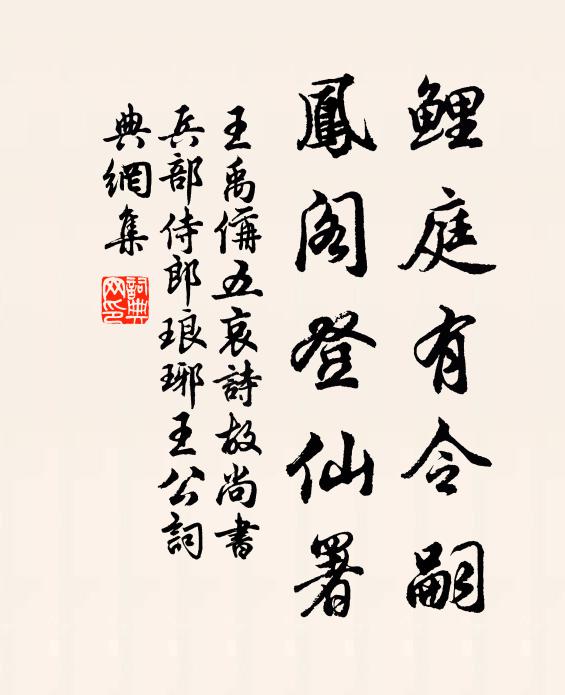 鯉庭有令嗣
鳳閣登仙署
王禹偁五哀詩故尚書
兵部侍郎琅琊王公詞
典網集
詞典網印